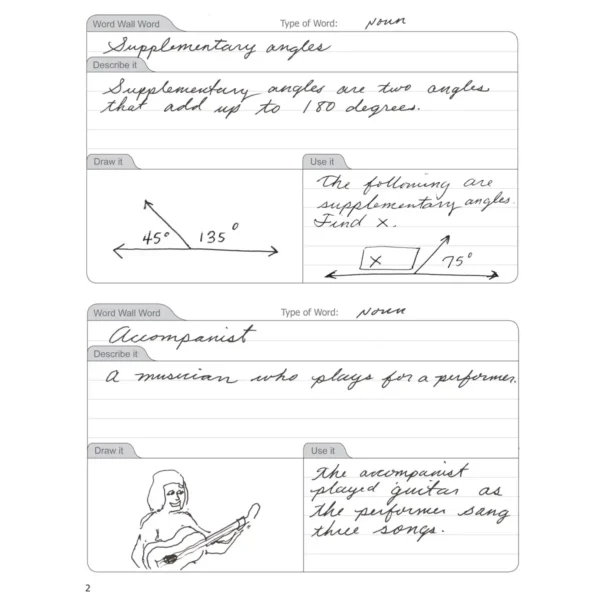 Word Wall Word
Type of Word: Noun
Supplementary angles
Describe it
Supplementary angles are two angles
that add up to 180 degrees.
Draw it
Use it
45° 135°
The following are
supplementary angles.
Find x.
x 75°
Word Wall Word
Type of Word: Noun
Accompanist
Describe it
A musician who plays for a performer.
Draw it
Use it
The accompanist
played guitar as
the performer sang
three songs.
2